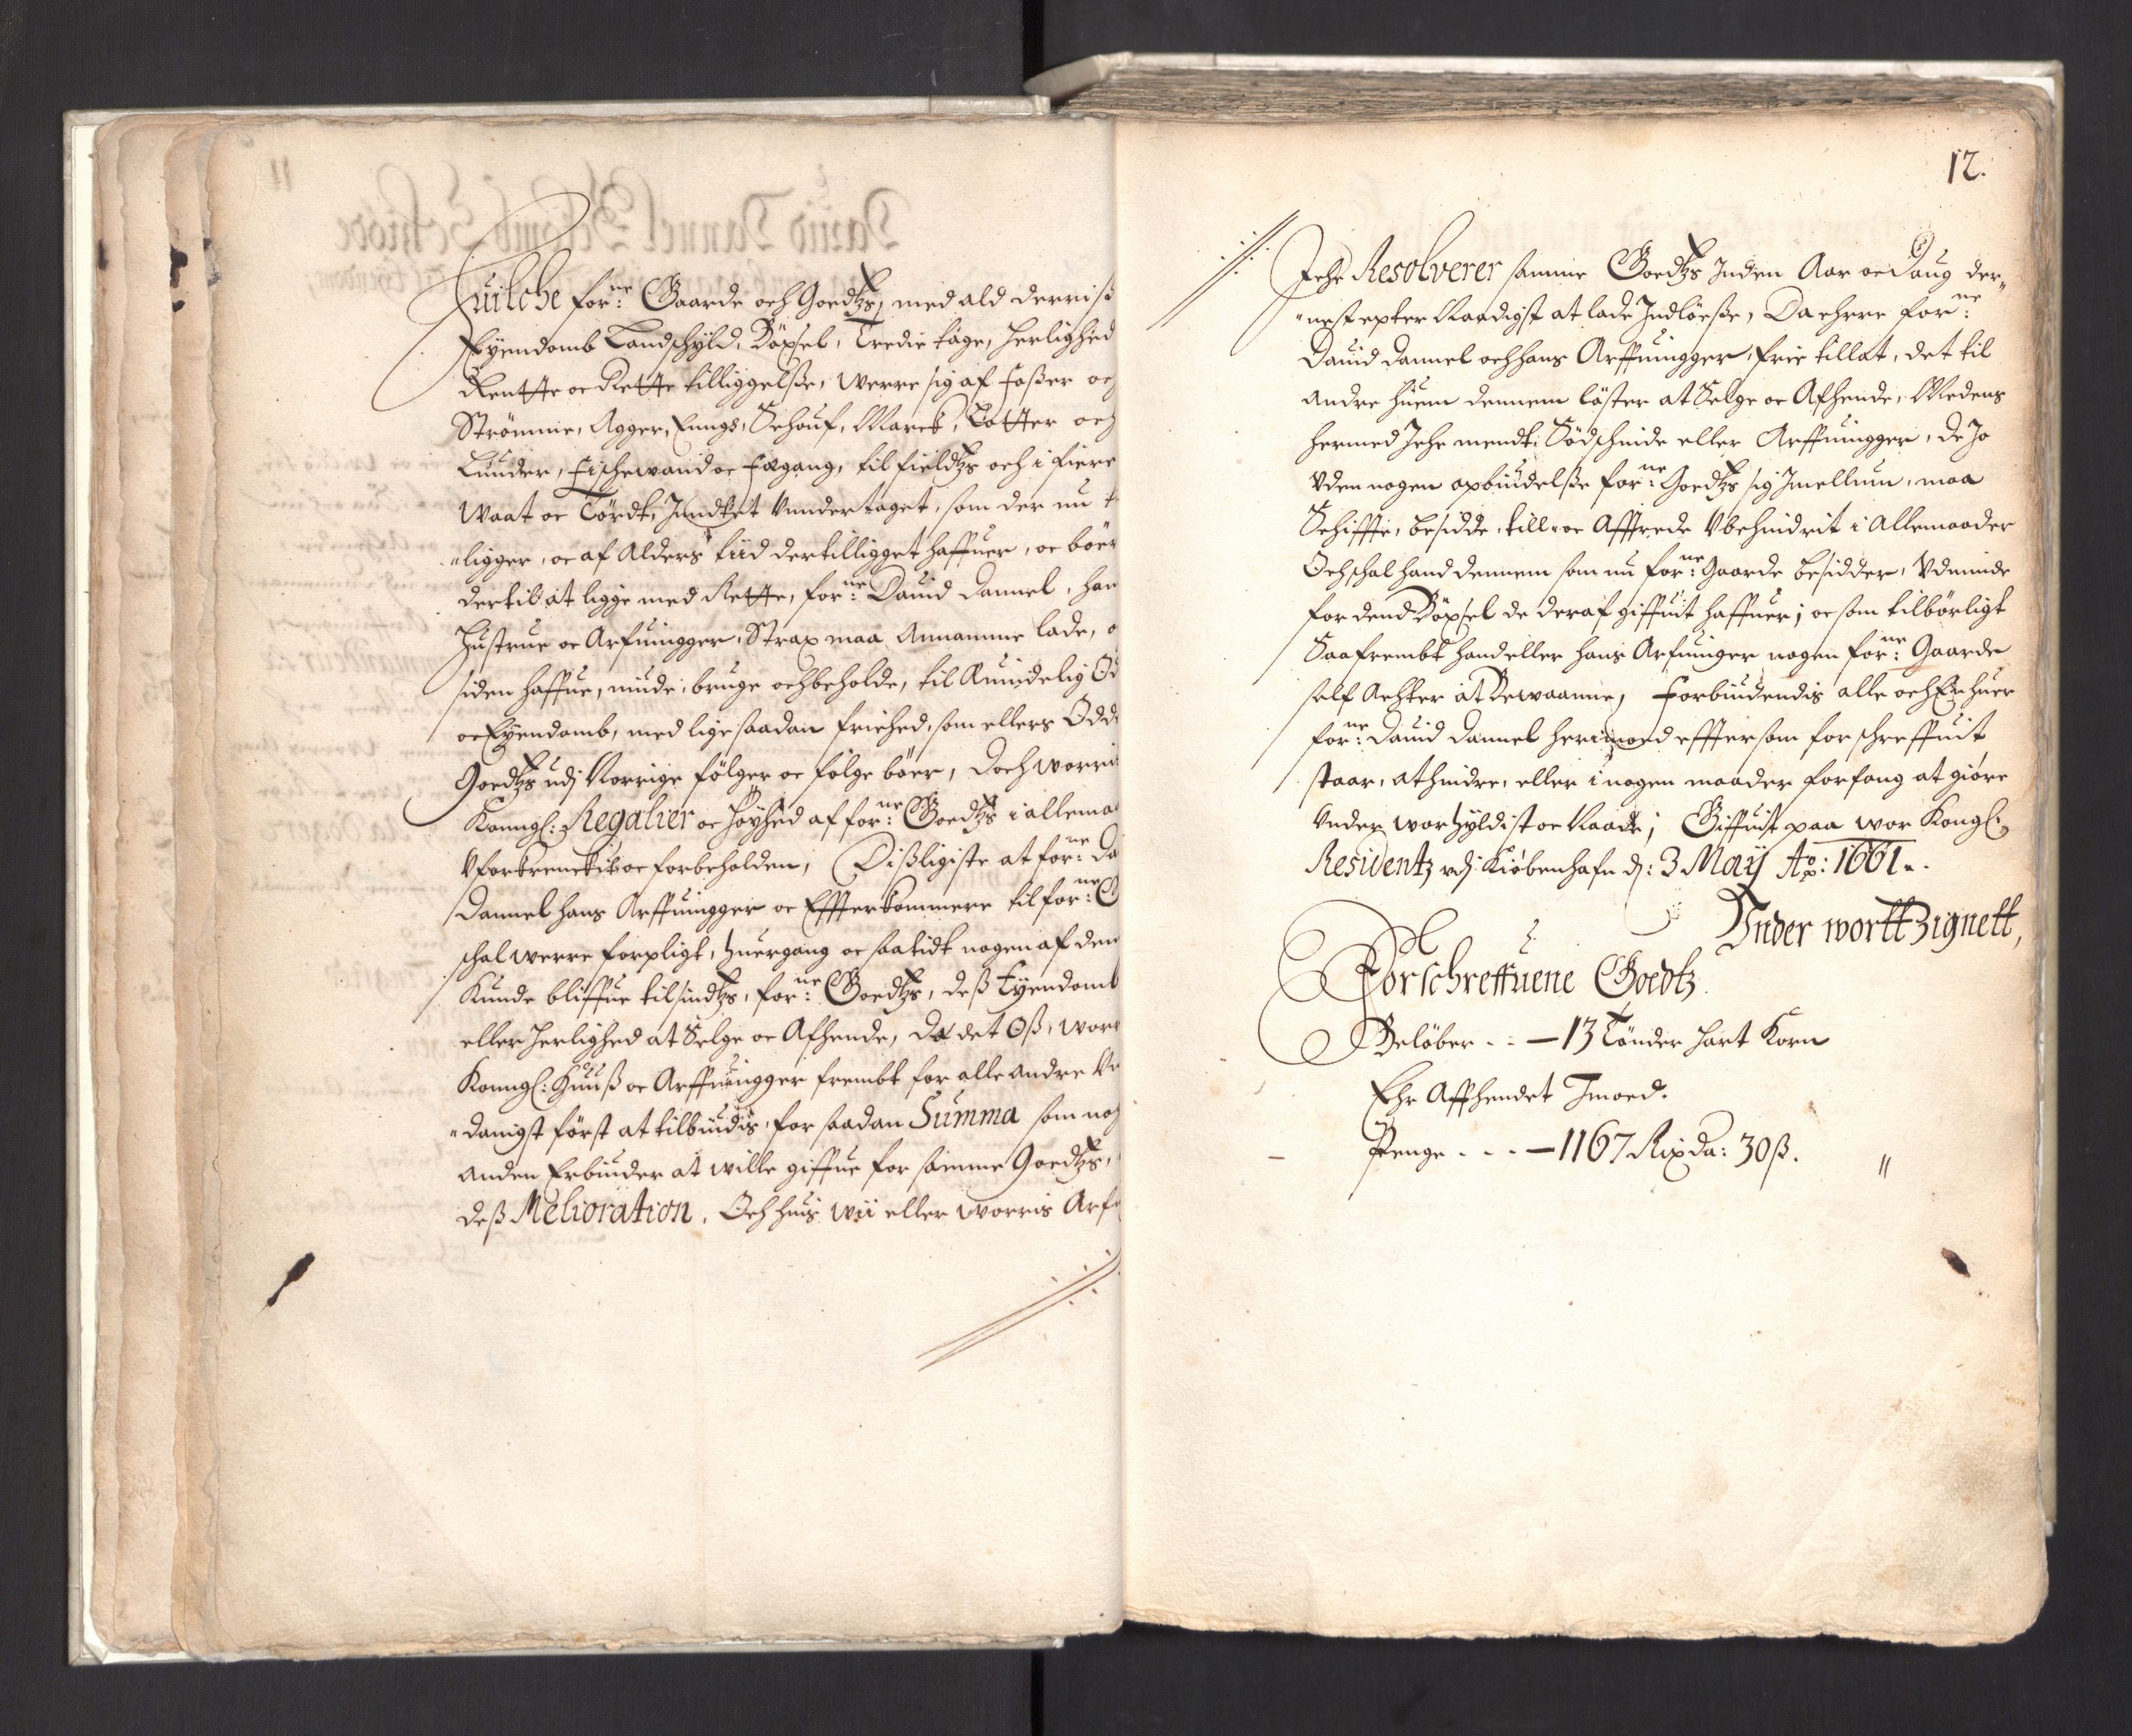 Huilche for:ne Gaarde och Goedtzs, med ald derris
Eyendomb Landschyld, Böxsel, Tredie tage, herlighed
Rentte oc Rette tilliggelße, werre sig af Foßer och
Strömme, Agger, Eungs, Schouf, Marck, Lotter och
Lunder, Fischewand oc Fægang, til fieldtzs och i fiere
Waat oc Tördt, Inndtet Unndertaget, som der nu t
"ligger, oc af Alders tiid dertilligget haffuer, oc böer
dertil at ligge med Rette, for:ne Dauid Dannel, han
Hustrue oc Arfuingger, Strax maa Annamme lade, o
siden haffue, nüde, bruge och beholde, til Æuindelig Od
oc Eyendomb, med lige saadan friehed, som ellers Odd
Goedtzs udj Norrige fölger oc fölge böer, doch worri
Konngl: Regalier oc Höyhed af for:ne Goedtzs i allema
Vforkrencket oc forbeholden, Dißligiste at for:ne Da
Dannel hans Arffuingger oc Effterkommere til for:ne G
schal werre forpligt, huergang oc saatidt nogen af dem
Kunde bliffue tilsindtzs, for:ne Goedtzs, deß Eyendomb
eller herlighed at Selge oc Afhende, da det Oß, worr
Konngl: Huuß oc Arffuingger frembt for alle andre Vn
"danigst först at tilbiudis, for saadan Summa som noch
anden Erbiuder at wille giffue for samme Goedtzs,
deß Melioration. Och huis wii eller worris Arf
12.
Icke Resolverer samme Goedtzs Inden Aar oc Daug der"
"nest epter Naadigst at lade Indlöeße, Da ehrre for:ne
Dauid Dannel och hans Arffuingger, frie tillat, det til
andre huem dennem löster at Selge oc Afhende, Medens
hermed Icke mendt: Södschinde eller Arffuingger, de Jo
Uden nogen opbiudelße for:ne Goedtzs sig Imellum, maa
Schiffte, besidde, till- oc Afftrede Vbehindrit i Allemaader
Och schal hand dennem som nu for:ne Gaarde besidder, Vdminde
for dend Böxsel de deraf giffuit haffuer; oc som tilbörligt
Saafrembt hand eller hans Arfuinger nogen for:ne Gaarde
self Achter at Bewaanne, Forbiudendis alle och Enhuer
for:ne Dauid Dannel herimoed effter som forschreffuit
staar, at hindre, eller i nogen maader forfang at giöre
Under wor hyldist oc Naade; Giffuit paa wor Kongl:
Residentz udj Kiöbenhafn d: 3 Maij Ao: 1661.
Under wortt Zignett,
Forschreffuene Goedtz
Belöber - - — 13 Tönder hart Korn
Ehr Affhendet Imoed.
Penge - - - — 1167 Rixda: 30 ß.